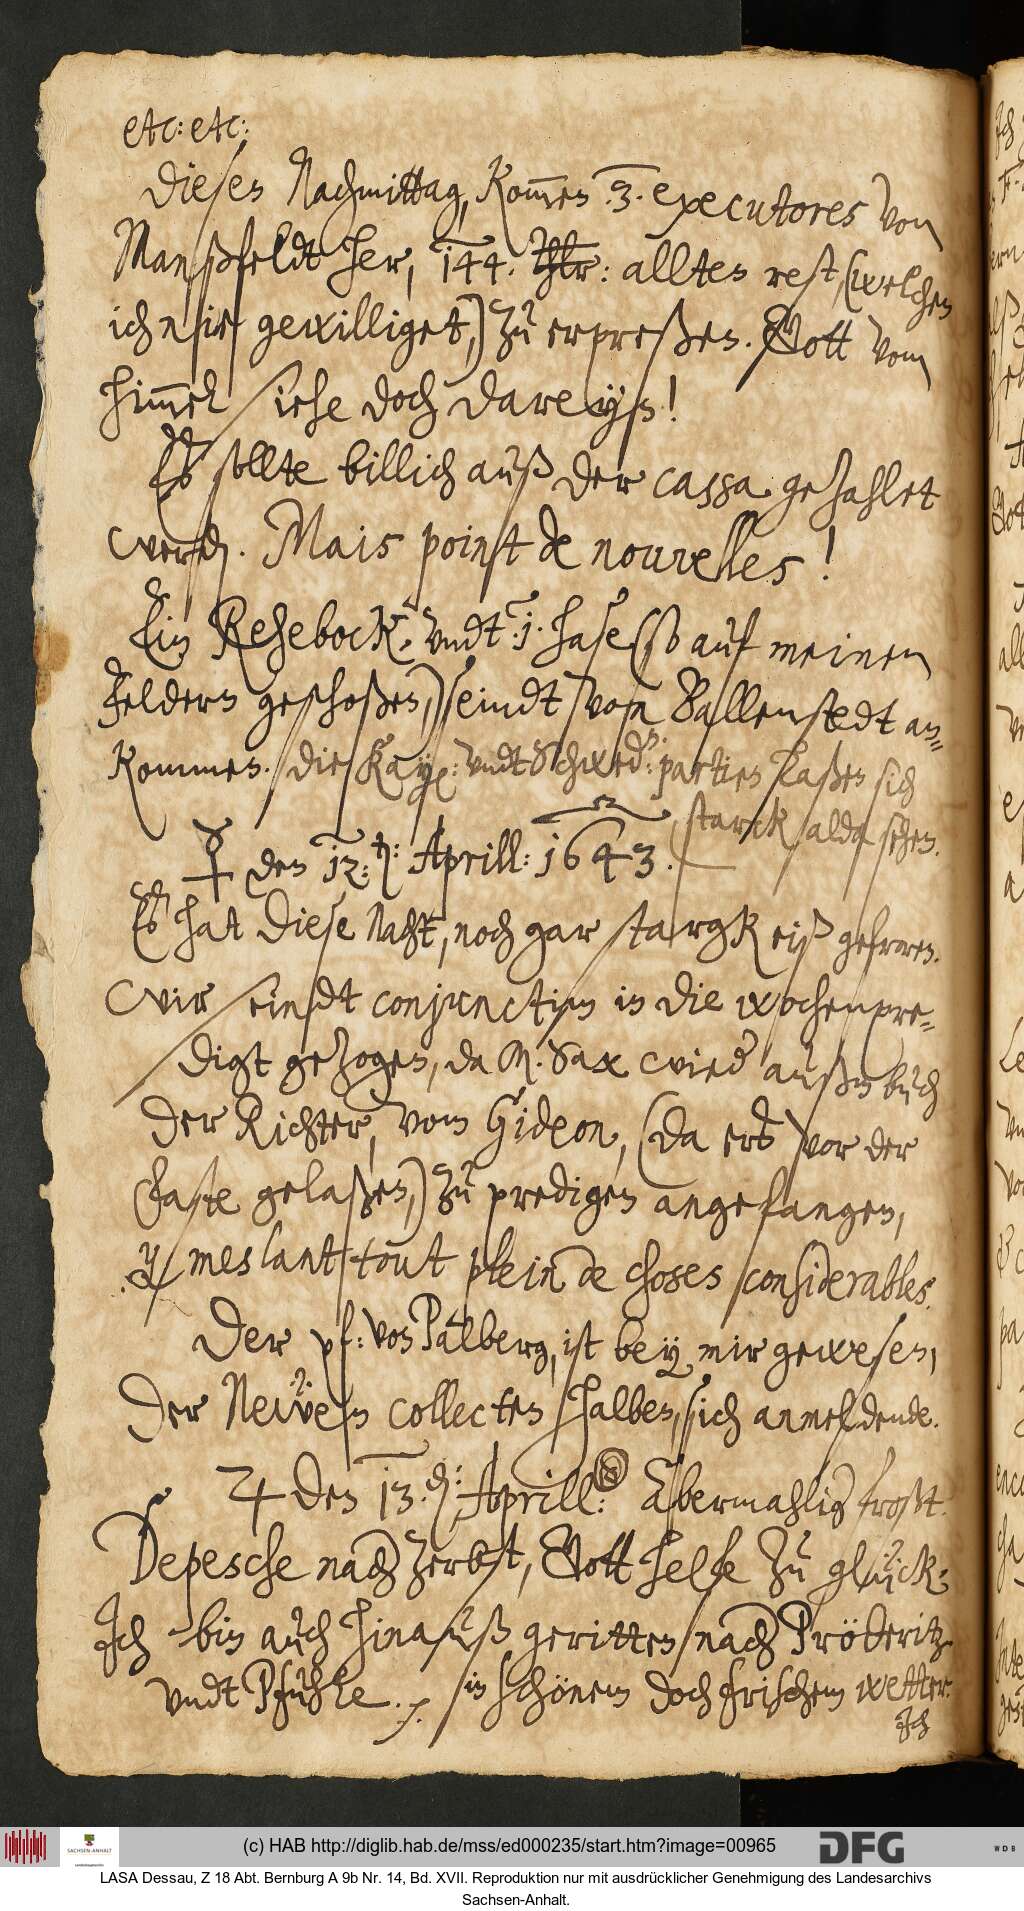 etc: etc:
Dieses Nachmittag, kom̄en .3. executores von
Manßfeldt her, 144. Thlr: alltes rest, (welchen
ich nie gewilliget,) zu erpreßen. Gott vom
him̄el siehe doch dareyn!
Es sollte billich auß der cassa gezahlet
werden. Mais point de nouvelles!
Ein Rehebock, vndt .1. hase (so auf meinen
feldern geschoßen,) seindt von Ballenstedt an-
kommen. die Kay: vndt Schwed: partien laßen sich
starck alda sehen.
☿ den 12.ten: Aprill: 1643.
Es hat diese Nacht, noch gar stargk eiß gefroren.
Wir seindt conjunctim in die wochenpre-
digt gezogen, da M. Sax wied außm buch
der Richter, vom Gideon, (da ers vor der
faste gelaßen,) zu predigen angefangen,
y meslant tout plein de choses considerables.
Der pf: von Palberg, ist bey mir gewesen,
der Neẅen collecten halben, sich anmeldende.
♃ den 13.den: Aprill: Abermahlig frost.
Depesche nach Zerbst, Gott helfe zu glück.
Ich bin auch hinauß geritten nach Pröderitz
vndt Pfuhle ./. in schönem doch frischem wetter.
Ich
SACHSEN-ANHALT
(c) HAB http://diglib.hab.de/mss/ed000235/start.htm?image=00965
DFG
WDB
LASA Dessau, Z 18 Abt. Bernburg A 9b Nr. 14, Bd. XVII. Reproduktion nur mit ausdrücklicher Genehmigung des Landesarchivs
Sachsen-Anhalt.